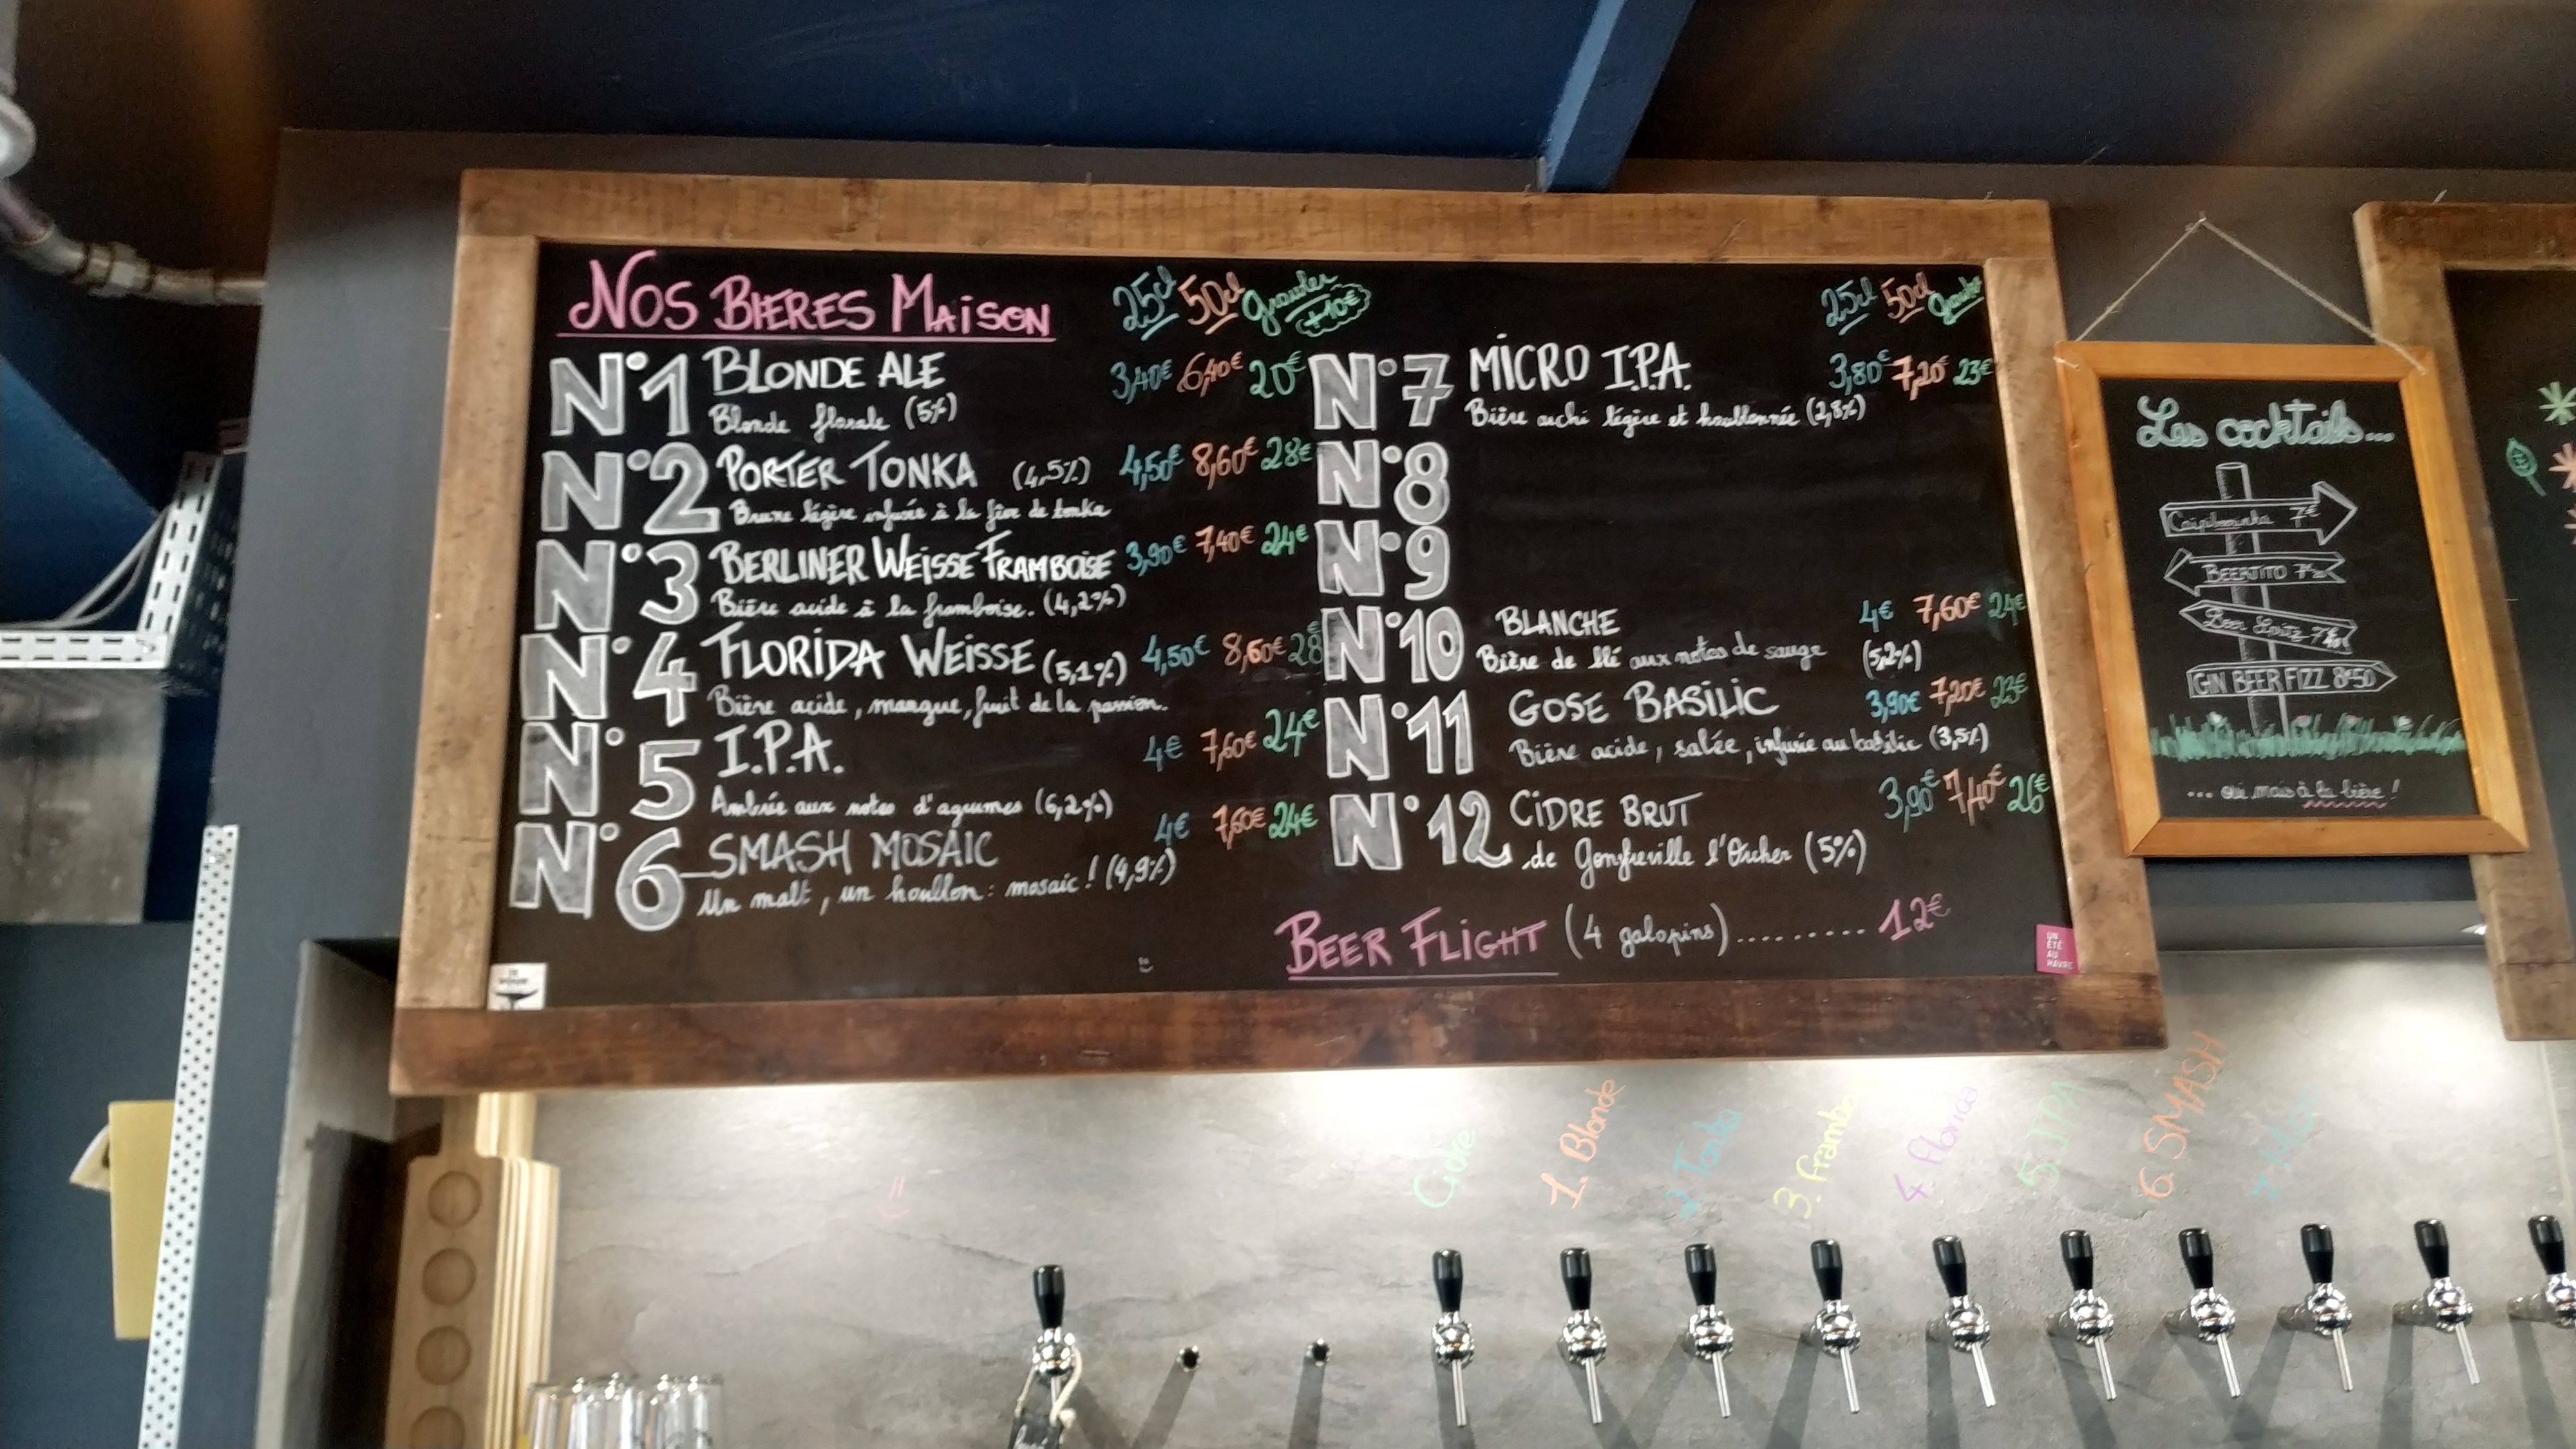 NOS BIERES MAISON 25cl 50cl growler +10€
N°1 BLONDE ALE 3,40€ 6,40€ 20€
Blonde florale (5%)
N°2 PORTER TONKA (4,5%) 4,50€ 8,60€ 28€
Brune légère infusée à la fève de tonka
N°3 BERLINER WEISSE FRAMBOISE 3,90€ 7,40€ 24€
Bière acide à la framboise. (4,2%)
N°4 FLORIDA WEISSE (5,1%) 4,50€ 8,60€ 28€
Bière acide, mangue, fruit de la passion.
N°5 I.P.A. 4€ 7,60€ 24€
Ambrée aux notes d'agrumes (6,2%)
N°6 SMASH MOSAIC 4€ 7,60€ 24€
Un malt, un houblon: mosaic! (4,9%)
25cl 50cl growler
N°7 MICRO I.P.A. 3,80€ 7,20€ 23€
Bière archi légère et houblonnée (2,8%)
N°8
N°9
N°10 BLANCHE 4€ 7,60€ 24€
Bière de blé aux notes de sauge (5,2%)
N°11 GOSE BASILIC 3,90€ 7,20€ 23€
Bière acide, salée, infusée au basilic (3,5%)
N°12 CIDRE BRUT 3,90€ 7,40€ 26€
de Gonfreville l'Orcher (5%)
BEER FLIGHT (4 galopins)......... 12€
UN
ÉTÉ
AU
HAVRE
Les cocktails...
Caipibeerinha 7€
BEERJITO
Beer Spritz
GIN BEER FIZZ 8€50
... oui mais à la bière!
Cidre
1. Blonde
2. Tonka
3. Frambo
4.
5. IPA
6. SMASH